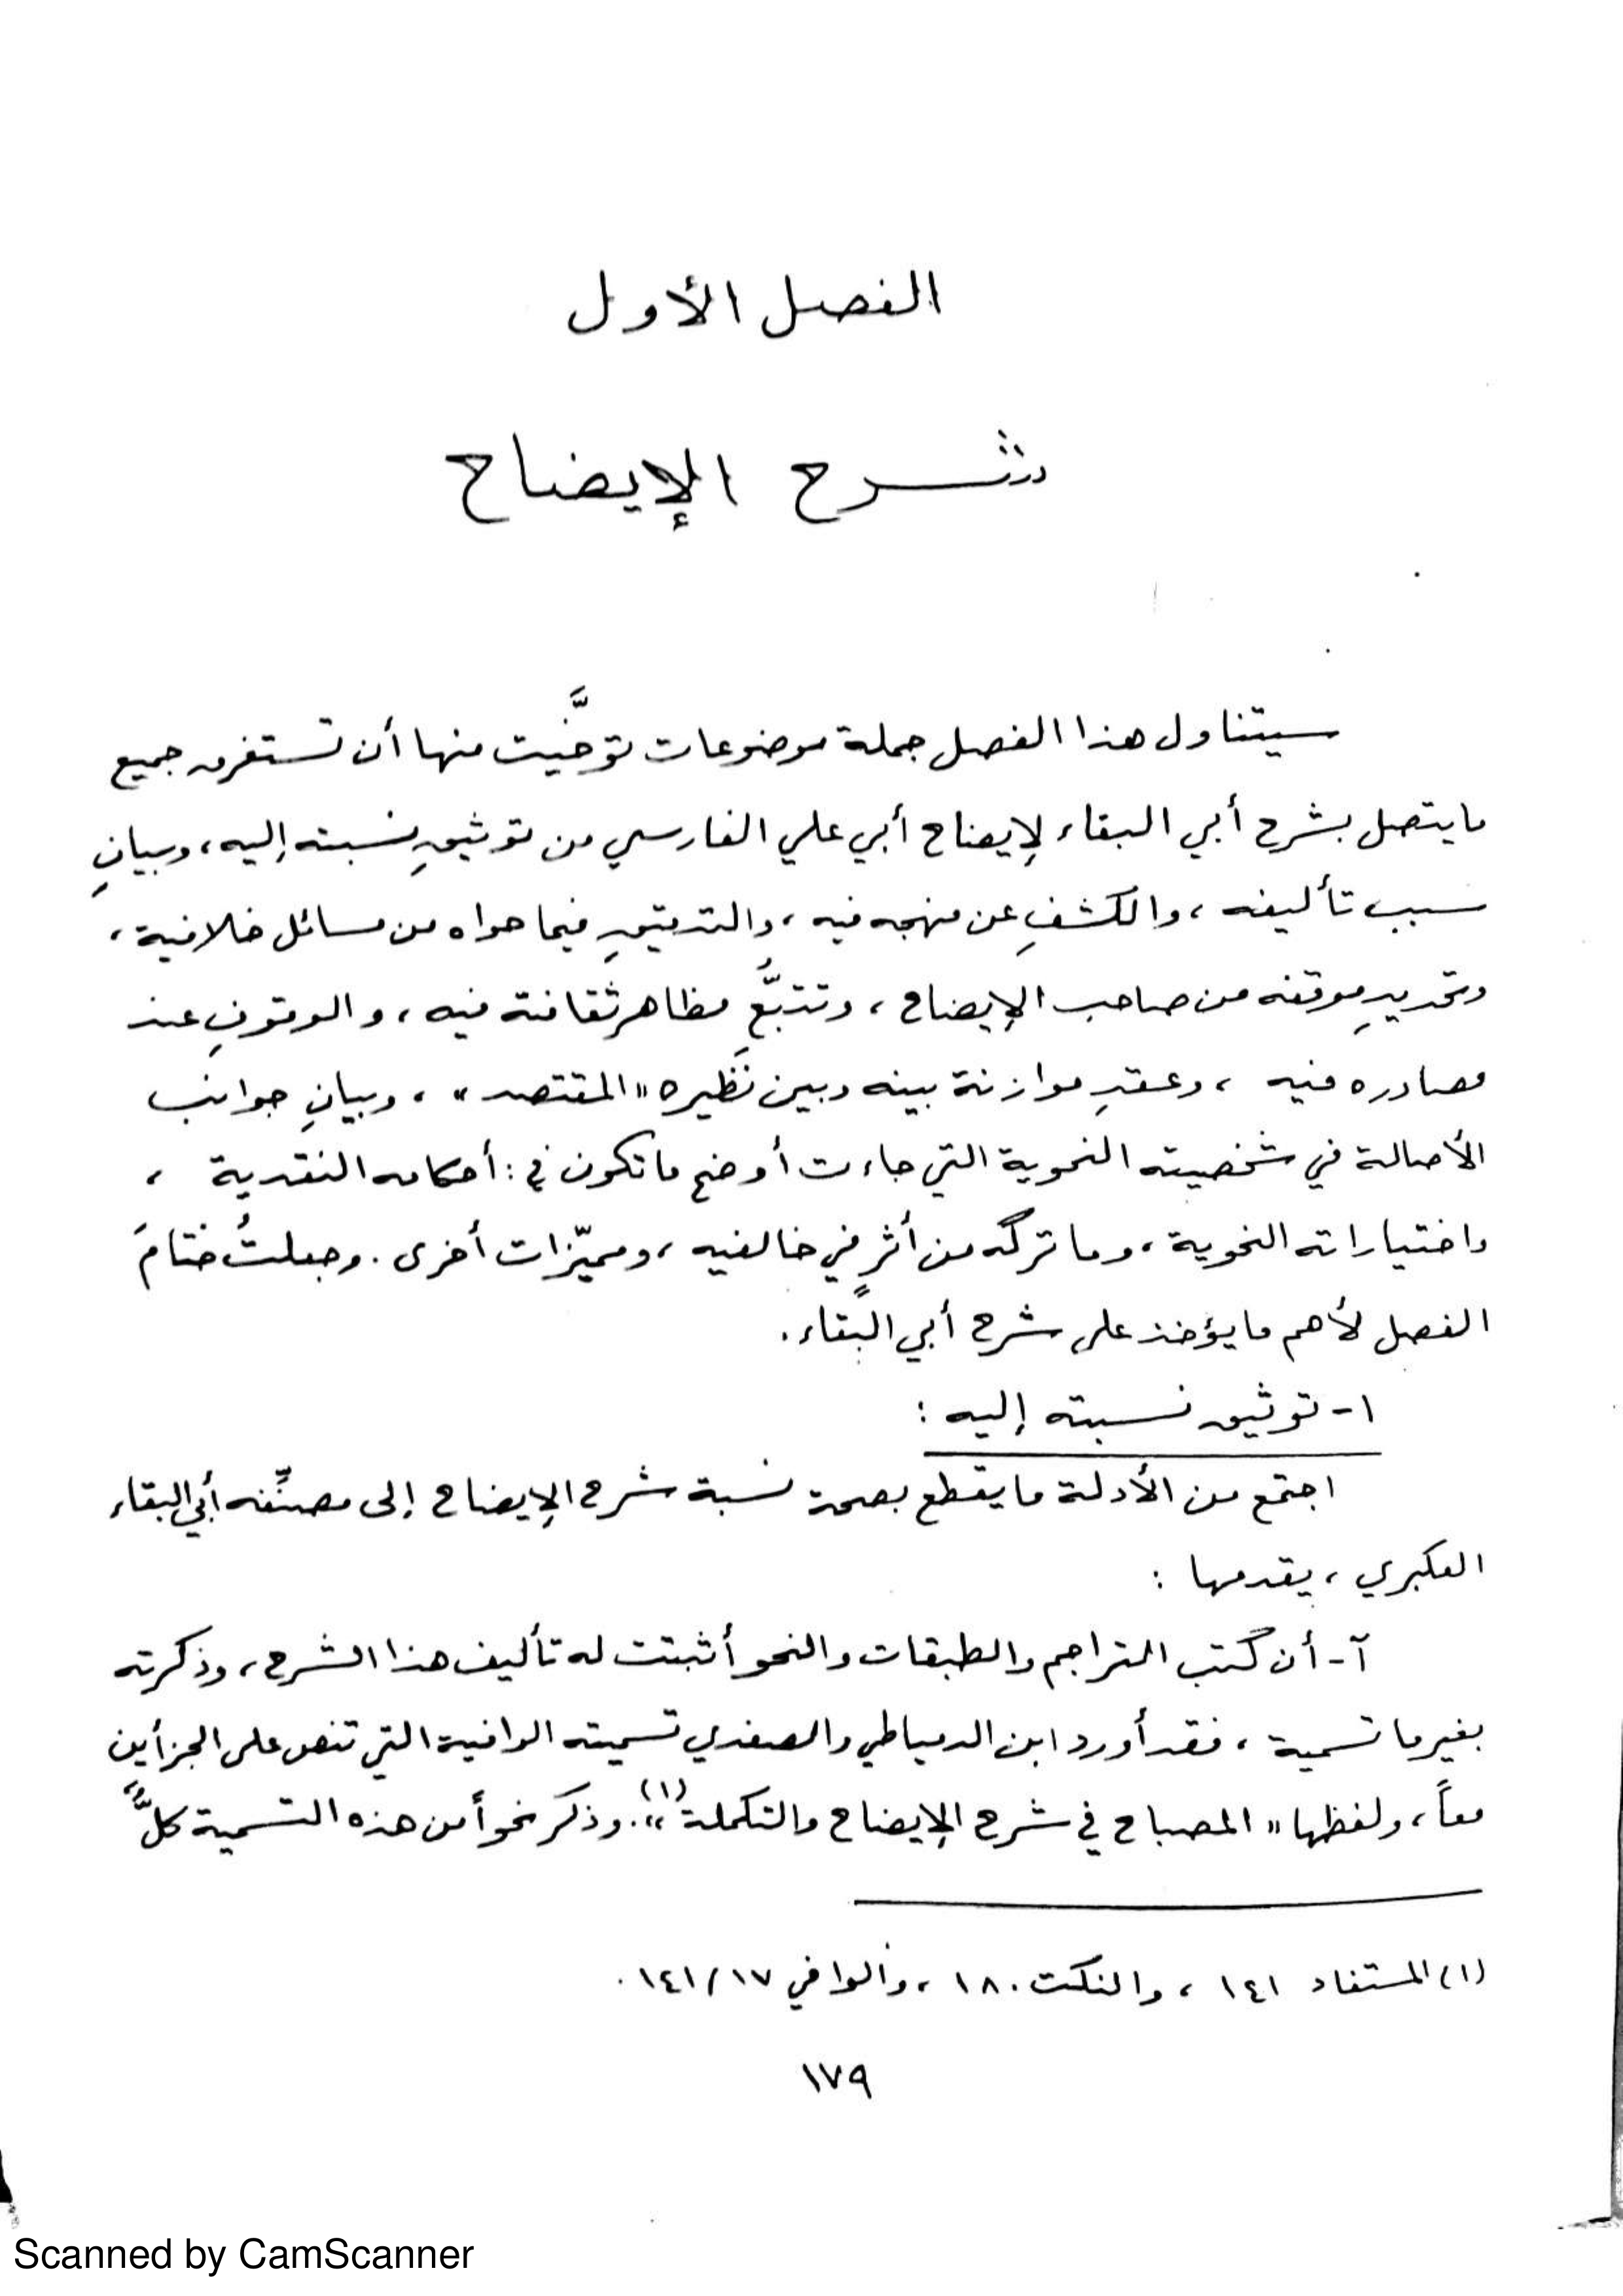 الفصل الأول
شرح الإيضاح
سيتناول هذا الفصل جملة موضوعات توخَّيت منها أن تستغرق جميع
ما يتصل بشرح أبي البقاء لإيضاح أبي علي الفارسي من توثيقِ نسبته إليه، وبيانِ
سبب تأليفه، والكشفِ عن منهجه فيه، والتدقيقِ فيما حواه من مسائل خلافية،
وتحديدِ موقفه من صاحب الإيضاح، وتتبُّعِ مظاهر ثقافته فيه، والوقوفِ عند
مصادره فيه، وعقدِ موازنة بينه وبين نَظيره «المقتصد»، وبيانِ جوانب
الأصالة في شخصيته النحوية التي جاءت أوضح ما تكون في: أحكامه النقدية،
واختياراته النحوية، وما تركه من أثرٍ في خالفيه، ومميّزات أخرى. وجعلتُ ختامَ
الفصل لأهم ما يؤخذ على شرح أبي البقاء.
١- توثيق نسبته إليه:
اجتمع من الأدلة ما يقطع بصحة نسبة شرح الإيضاح إلى مصنِّفه أبي البقاء
العكبري، يقدمها:
آ- أن كتب التراجم والطبقات والنحو أثبتت له تأليف هذا الشرح، وذكرته
بغير ما تسمية، فقد أورد ابن الدمياطي والصفدي تسميته الوافية التي تنص على الجزأين
معاً، ولفظها «المصباح في شرح الإيضاح والتكملة»(١). وذكر نحواً من هذه التسمية كلٌّ
(١) المستفاد ١٤١، والنكت ١٨٠، والوافي ١٧/١٤١.
١٧٩
Scanned by CamScanner